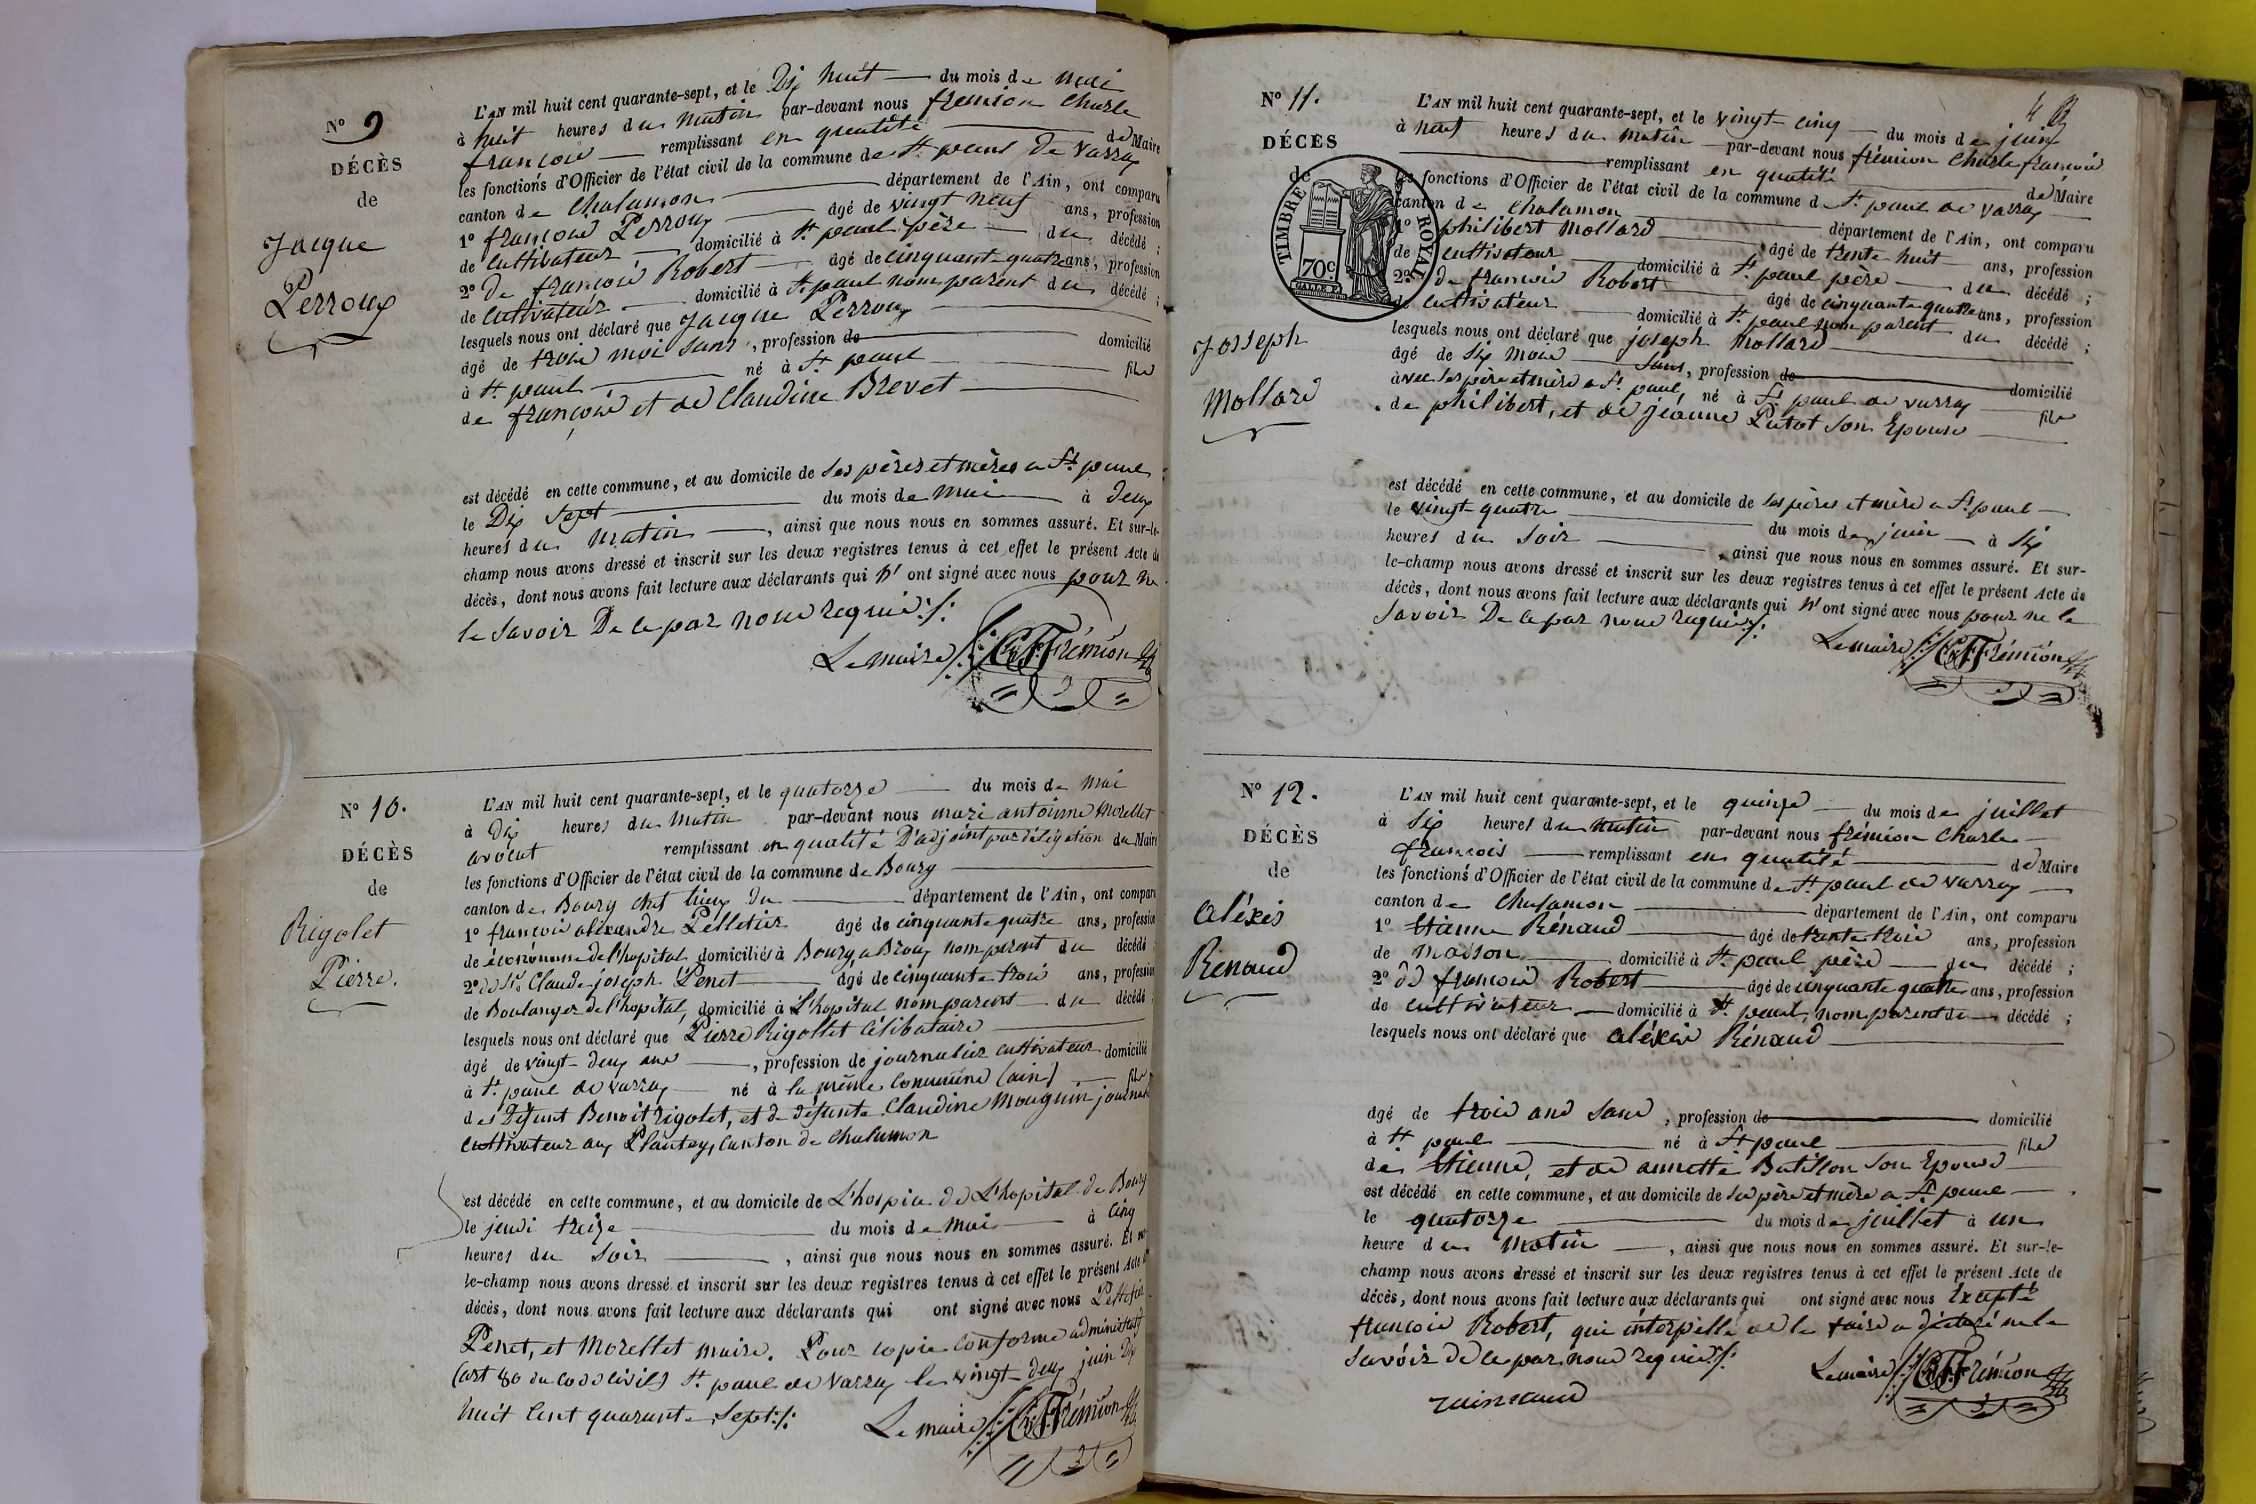 N° 9
DÉCÈS
de
Jacque
Perroux
L'AN mil huit cent quarante-sept, et le Dix huit du mois de mai
à huit heures du matin par-devant nous fremion Charle
françois remplissant en qualité de Maire
les fonctions d'Officier de l'état civil de la commune de St paul De Varax
canton de Chalamon département de l'Ain, ont comparu
1° françois Perroux âgé de vingt neuf ans, profession
de Cultivateur domicilié à St paul père du décédé ;
2° De françois Robert âgé de cinquant quatre ans, profession
de Cultivateur domicilié à St paul nom parent du décédé ;
lesquels nous ont déclaré que Jacque Perroux
âgé de trois moi sans, profession de domicilié
à St paul né à St paul fils
de françois et de Claudine Brevet
est décédé en cette commune, et au domicile de ses pères et mères a St paul
le Dix Sept du mois de mai à deux
heures du matin, ainsi que nous nous en sommes assuré. Et sur-le-
champ nous avons dressé et inscrit sur les deux registres tenus à cet effet le présent Acte de
décès, dont nous avons fait lecture aux déclarants qui n' ont signé avec nous pour ne
le Savoir De ce par nous requis ./.
Le maire ./. C.F. Frémion
N° 10.
DÉCÈS
de
Rigolet
Pierre.
L'AN mil huit cent quarante-sept, et le quatorze du mois de mai
à dix heures du matin par-devant nous mari antoinne Morellet
avocat remplissant en qualité D'adjoint par délégation du Maire
les fonctions d'Officier de l'état civil de la commune de Bourg
canton de Bourg chef lieux du département de l'Ain, ont comparu
1° françois alexandre Pelletier âgé de cinquante quatre ans, profession
de économme de l'hopital domicilié à Bourg, a Brou, nom parent du décédé
2° de Sr Claude joseph Penet âgé de cinquante trois ans, profession
de Boulanger de l'hopital, domicilié à L'hopital nom parens du décédé
lesquels nous ont déclaré que Pierre Rigollet Célibataire
âgé de vingt-deux ans, profession de journalier cultivateur domicilié
à St paul de varax né à la même Commune (ain) fils
des Défunt Benoit rigolet, et de défunte Claudine Mouguin journalier
Cultivateur aux Plantay, Canton de Chalamon
est décédé en cette commune, et au domicile de L'hospice de L'hopital de Bourg
le jeudi treize du mois de mai à Cinq
heures du soir, ainsi que nous nous en sommes assuré. Et sur-
le-champ nous avons dressé et inscrit sur les deux registres tenus à cet effet le présent Acte de
décès, dont nous avons fait lecture aux déclarants qui ont signé avec nous
Penet, et Morellet maire. Pour copie conforme administratif
(art 80 du code civil) St paul de Varax le vingt-deux juin Dix
huit Cent quarante Sept ./.
Le maire ./. C.F. Frémion
N° 11.
DÉCÈS
de
TIMBRE ROYAL
70c
Josseph
Mollard
4
L'AN mil huit cent quarante-sept, et le vingt-cinq du mois de juin
à neuf heures du matin par-devant nous frémion Charle françois
remplissant en qualité de Maire
les fonctions d'Officier de l'état civil de la commune de St paul de varax
canton de Chalamon département de l'Ain, ont comparu
1° philibert Mollard âgé de trente huit ans, profession
de Cultivateur domicilié à St paul père du décédé ;
2° de françois Robert âgé de cinquante quatre ans, profession
de Cultivateur domicilié à St paul nom parent du décédé ;
lesquels nous ont déclaré que joseph Mollard
âgé de Six mois sans, profession de domicilié
avec ses père et mère a St paul, né à St paul de varax fils
de philibert, et de jeanne Putot son Epouse
est décédé en cette commune, et au domicile de ses pères et mère a St paul
le vingt quatre du mois de juin à six
heures du soir, ainsi que nous nous en sommes assuré. Et sur-
le-champ nous avons dressé et inscrit sur les deux registres tenus à cet effet le présent Acte de
décès, dont nous avons fait lecture aux déclarants qui n' ont signé avec nous pour ne le
Savoir De ce par nous requis ./.
Le maire ./. C.F. Frémion
N° 12.
DÉCÈS
de
aléxis
Renaud
L'AN mil huit cent quarante-sept, et le quinze du mois de juillet
à Six heures du matin par-devant nous frémion Charle
francois remplissant en qualité de Maire
les fonctions d'Officier de l'état civil de la commune de St paul de varax
canton de Chalamon département de l'Ain, ont comparu
1° Etienne Rénaud âgé de trante trois ans, profession
de maison domicilié à St paul père du décédé ;
2° de françois Robert âgé de cinquante quattre ans, profession
de cultivateur domicilié à St paul, nom parent de décédé ;
lesquels nous ont déclaré que aléxis Rénaud
âgé de trois ans sans, profession de domicilié
à St paul né à St paul fils
de Etienne, et de annette Butillon son Epouse
est décédé en cette commune, et au domicile de ses père et mère a St paul
le quatorze du mois de juillet à un
heure du matin, ainsi que nous nous en sommes assuré. Et sur-le-
champ nous avons dressé et inscrit sur les deux registres tenus à cet effet le présent Acte de
décès, dont nous avons fait lecture aux déclarants qui ont signé avec nous Excepté
françois Robert, qui interpellé de le faire a déclaré ne le
Savoir de ce par nous requis ./.
Le maire ./. C.F. Frémion